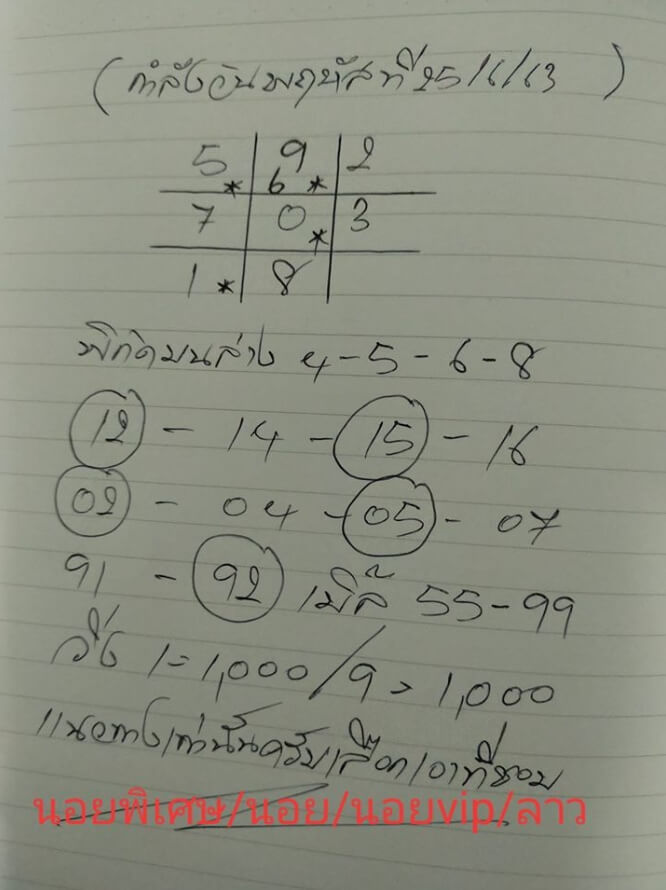 (กำลังวันพฤหัสที่ 25/6/63)
5 * 9 2
6 *
7 0 * 3
1 * 8
พิกัดบนล่าง 4-5-6-8
12 - 14 - 15 - 16
02 - 04 - 05 - 07
91 - 92 เบิ้ล 55-99
วิ่ง 1=1,000/9=1,000
แนวทางเท่านั้นครับเลือกเอาที่ชอบ
นอยพิเศษ/นอย/นอยvip/ลาว